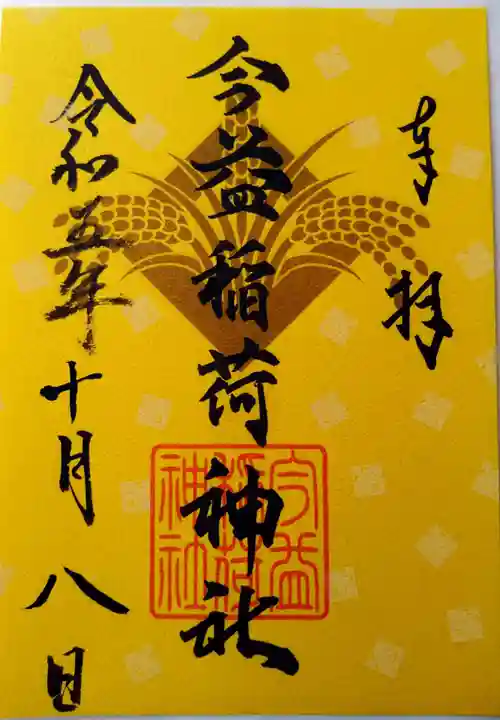 奉拝
今益稲荷神社
今益
稲荷
神社
令和五年十月八日